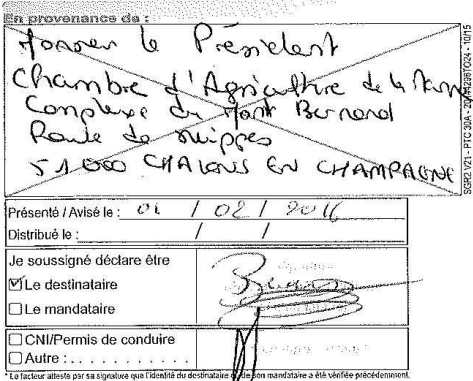 En provenance de :
Monsieur le Président
Chambre d'Agriculture de la Marne
Complexe du Mont Bernard
Route de Suippes
51000 CHALONS EN CHAMPAGNE
SGR2 V21 - PTC 30A - 10/15
Présenté / Avisé le : 01 / 02 / 2016
Distribué le : / /
Je soussigné déclare être
Le destinataire
Le mandataire
CNI/Permis de conduire
Autre : . . . . . . . . . .
* Le facteur atteste par sa signature que l'identité du destinataire ou de son mandataire a été vérifiée précédemment.